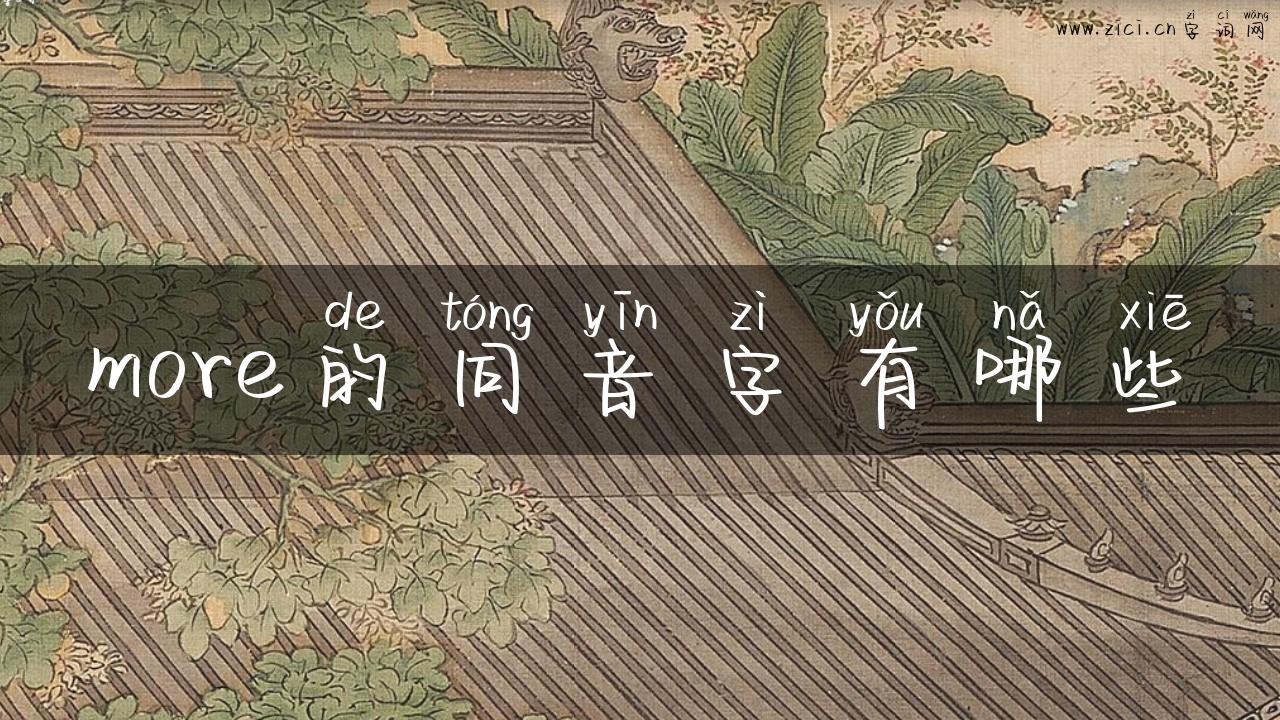 zì cí wǎng
www.zici.cn 字词网
de tóng yīn zì yǒu nǎ xiē
more的同音字有哪些